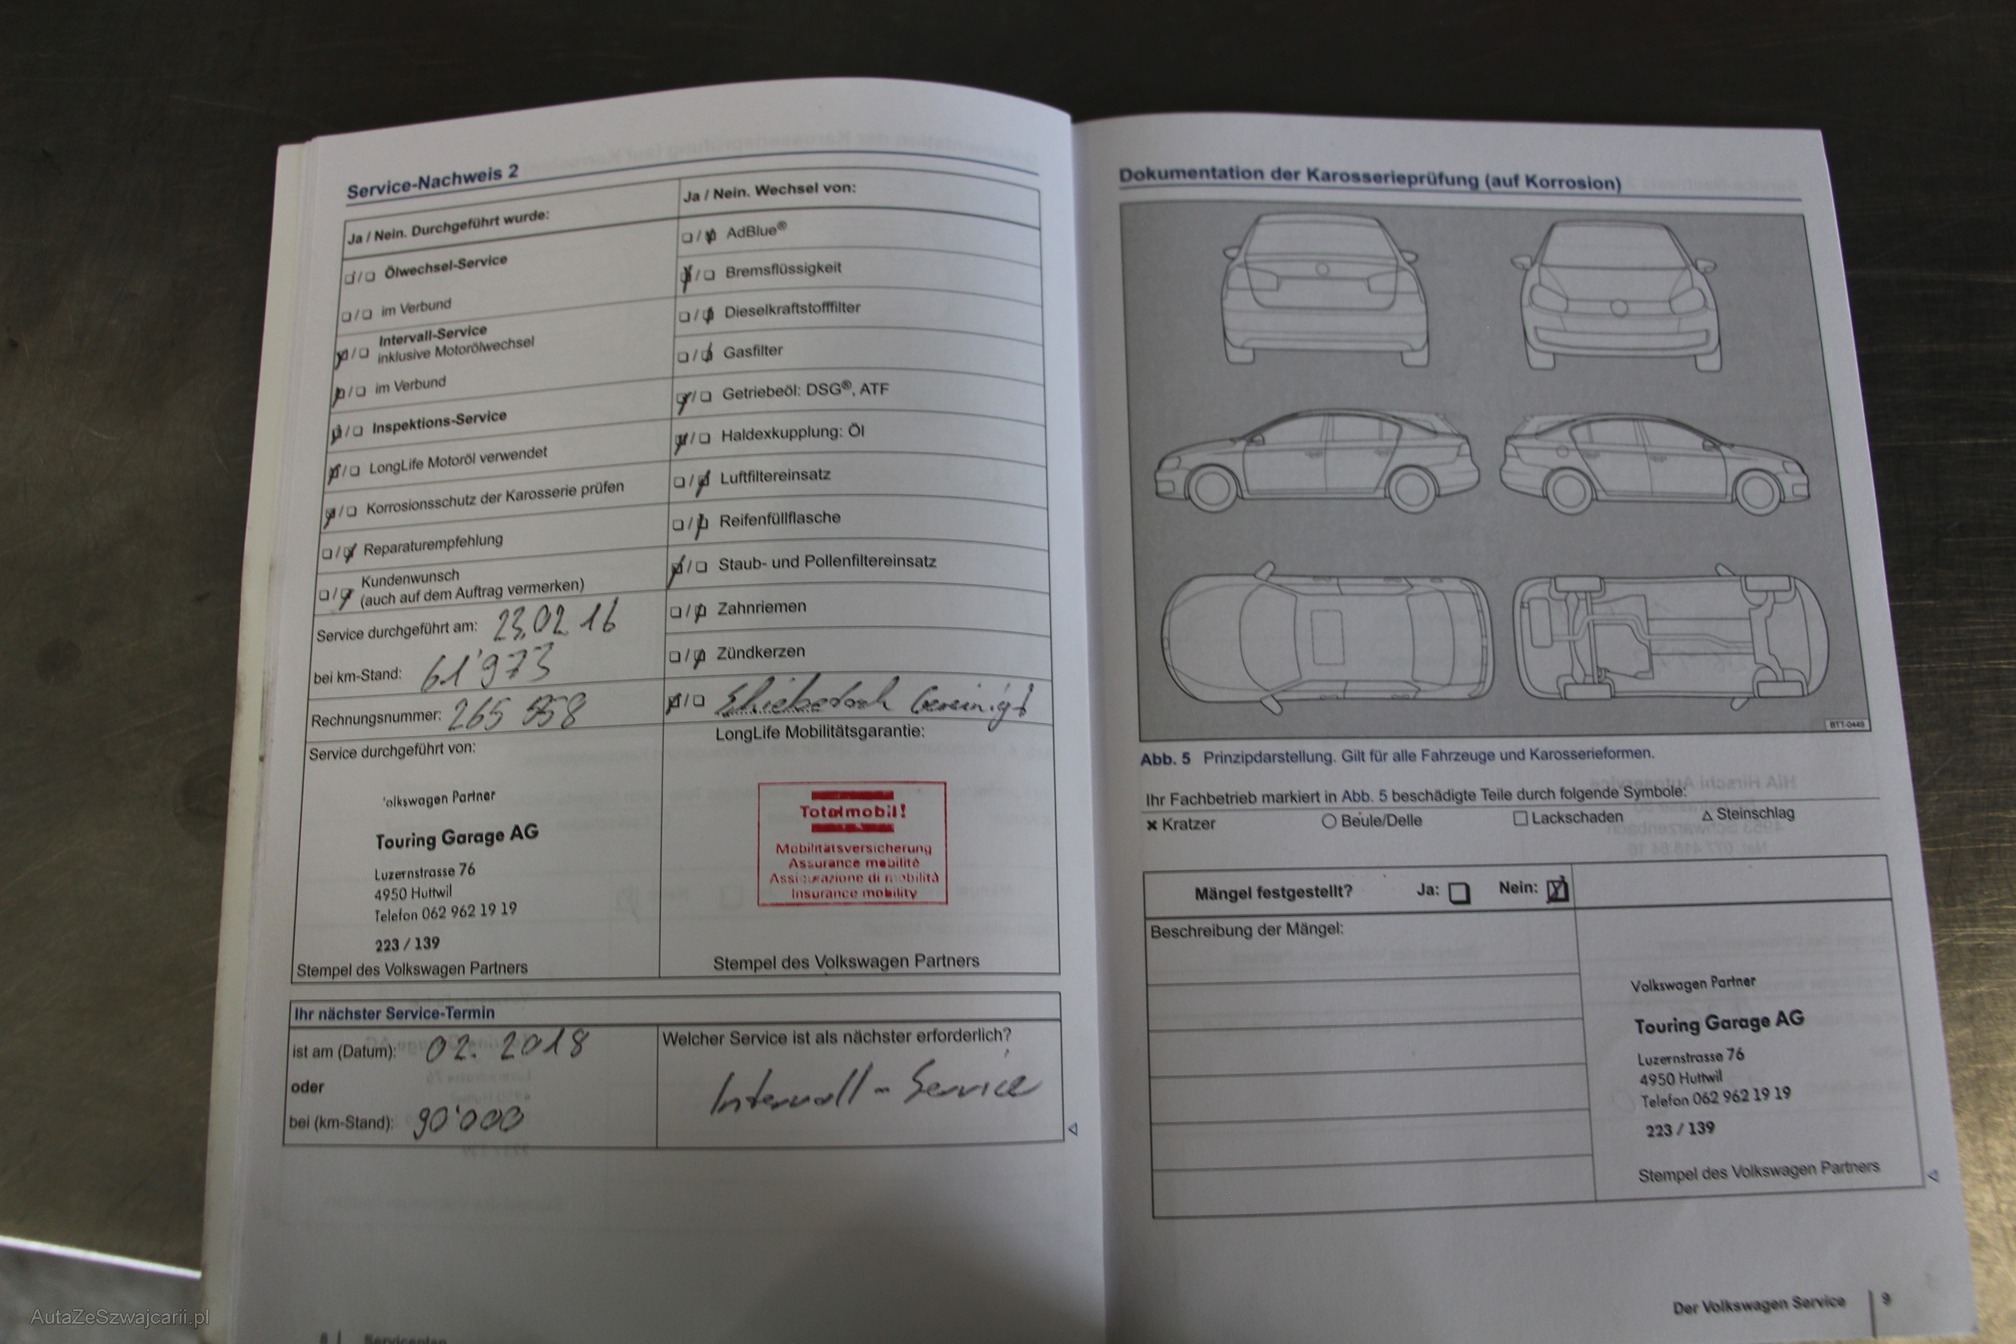 Service-Nachweis 2
Ja / Nein. Durchgeführt wurde:
Ölwechsel-Service
im Verbund
Intervall-Service
inklusive Motorölwechsel
im Verbund
Inspektions-Service
LongLife Motoröl verwendet
Korrosionsschutz der Karosserie prüfen
Reparaturempfehlung
Kundenwunsch
(auch auf dem Auftrag vermerken)
Service durchgeführt am: 23.02 16
bei km-Stand: 61'973
Rechnungsnummer: 265 858
Service durchgeführt von:
Ja / Nein. Wechsel von:
AdBlue®
Bremsflüssigkeit
Dieselkraftstofffilter
Gasfilter
Getriebeöl: DSG®, ATF
Haldexkupplung: Öl
Luftfiltereinsatz
Reifenfüllflasche
Staub- und Pollenfiltereinsatz
Zahnriemen
Zündkerzen
Schiebedach Gereinigt
LongLife Mobilitätsgarantie:
olkswagen Partner
Touring Garage AG
Luzernstrasse 76
4950 Huttwil
Telefon 062 962 19 19
223 / 139
Stempel des Volkswagen Partners
Totalmobil!
Mobilitätsversicherung
Assurance mobilité
Assicurazione di mobilità
Insurance mobility
Stempel des Volkswagen Partners
Ihr nächster Service-Termin
ist am (Datum): 02. 2018
oder
bei (km-Stand): 90'000
Welcher Service ist als nächster erforderlich?
Intervall - Service
8 | Serviceplan
Dokumentation der Karosserieprüfung (auf Korrosion)
BTT-0449
Abb. 5 Prinzipdarstellung. Gilt für alle Fahrzeuge und Karosserieformen.
Ihr Fachbetrieb markiert in Abb. 5 beschädigte Teile durch folgende Symbole:
× Kratzer ○ Beule/Delle □ Lackschaden △ Steinschlag
Mängel festgestellt? Ja: Nein:
Beschreibung der Mängel:
Volkswagen Partner
Touring Garage AG
Luzernstrasse 76
4950 Huttwil
Telefon 062 962 19 19
223 / 139
Stempel des Volkswagen Partners
Der Volkswagen Service | 9
AutaZeSzwajcarii.pl